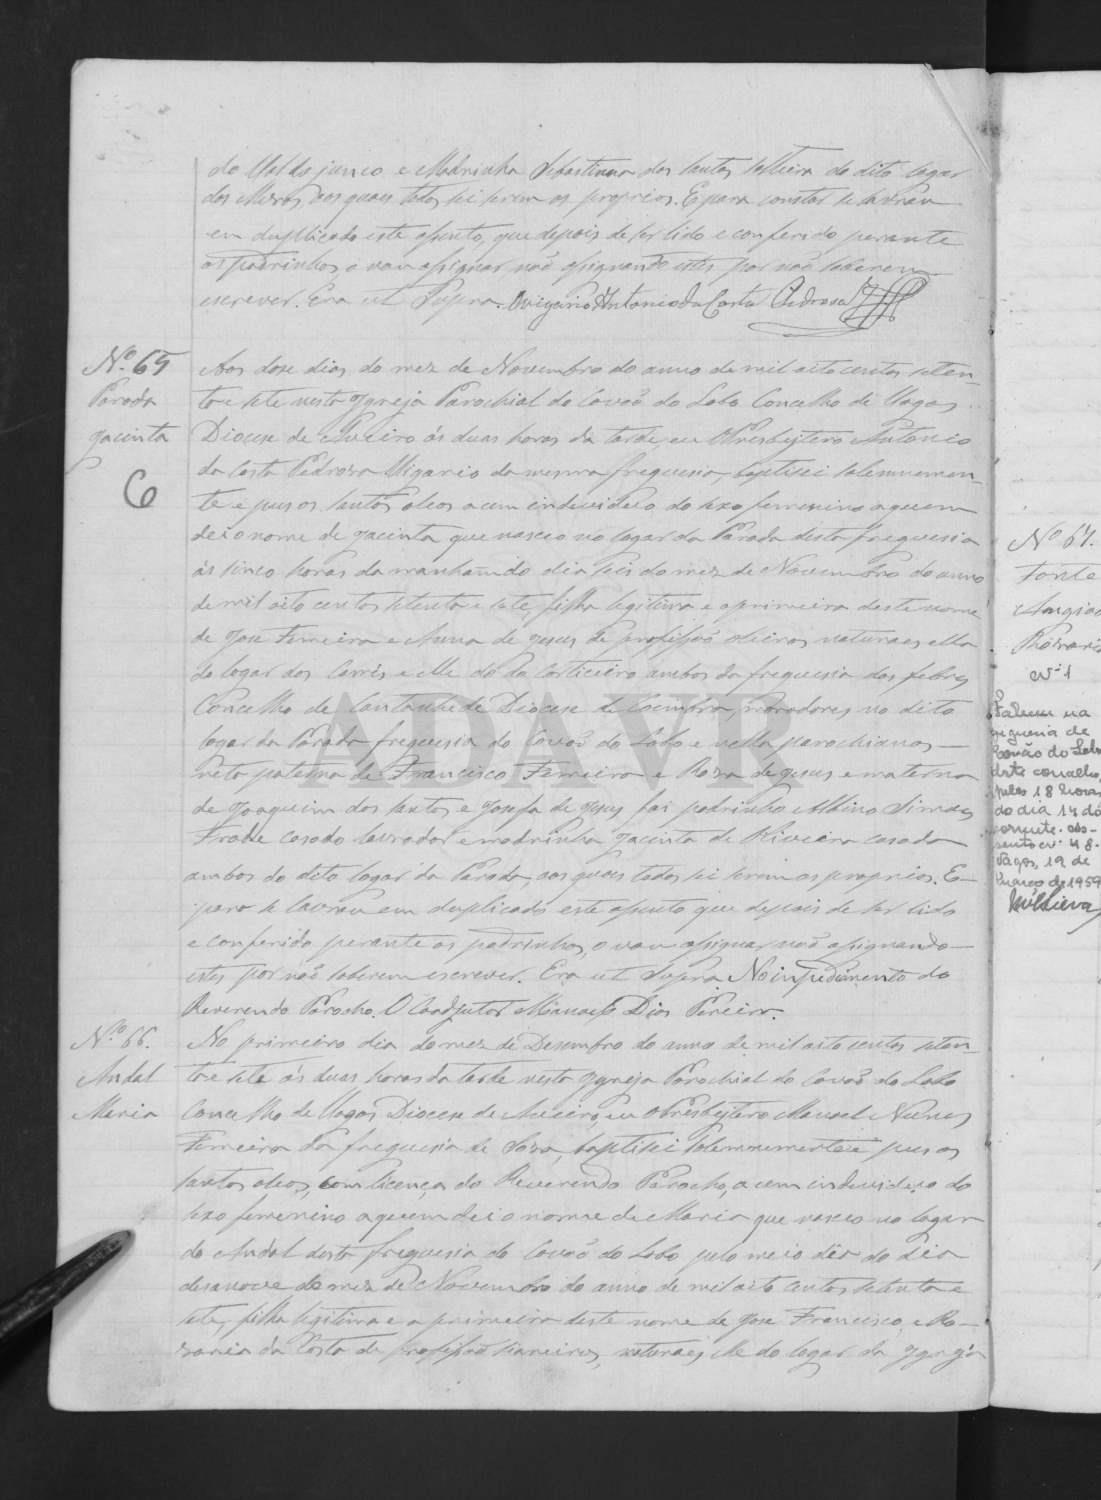 do Val do junco e Madrinha Sebastiana dos Santos solteira do dito logar
dos aos quaes todos sei serem os proprios. E para constar se lavrou
em duplicado este assento, que depois de ser lido e conferido perante
os padrinhos o vou assignar não assignando estes por não saberem
escrever. Era ut Supra. O vigario Antonio da Costa Pedrosa
Nº 65
Parada
Jacinta
6
Aos dose dias do mez de Novembro do anno de mil oito centos seten-
ta e sete nesta Igreja Parochial do Covão do Lobo Concelho de Vagos
Diocese de Aveiro ás duas horas da tarde, eu o Presbytero Antonio
da Costa Pedrosa Vigario da mesma freguesia, baptisei solemnemen-
te e pus os santos oleos a um individuo do sexo femenino a quem
dei o nome de Jacinta que nasceu no logar da Parada desta freguesia
ás sinco horas da manham do dia seis do mez de Novembro do anno
de mil oito centos setenta e sete, filha legitima e a primeira deste nome
de Jose Ferreira e Anna de Jesus de profissão oleiros naturaes ella
do logar dos e elle do da Corticeiro ambos da freguesia das febres
Concelho de Cantanhede Diocese de Coimbra, moradores no dito
logar da Parada freguesia do Covão do Lobo e nella parochianos
neta paterna de Francisco Ferreira e Rosa de Jesus e materna
de Joaquim dos Santos e Josefa de Jesus foi padrinho Albino Simões
casado lavrador e madrinha Jacinta de casada
ambos do dito logar da Parada, aos quaes todos sei serem os proprios. E
para se lavrou em duplicado este assento que depois de ser lido
e conferido perante os padrinhos, o vou assignar não assignando
estes por não saberem escrever. Era ut Supra. No inpedimento do
Reverendo Parocho. O Coadjutor Manoel Dias Pereira.
Nº 66.
Andal
Maria
No primeiro dia do mez de Desembro do anno de mil oito centos seten-
ta e sete ás duas horas da tarde nesta Igreja Parochial do Covão do Lobo
Concelho de Vagos Diocese de Aveiro, eu o Presbytero Manoel Nunes
Ferreira da freguesia de Sosa, baptisei solemnemente e pus os
santos oleos, com licença do Reverendo Parocho, a um individuo do
sexo femenino a quem dei o nome de Maria que nasceu no logar
do Andal desta freguesia do Covão do Lobo pelo meio dia do dia
desanove do mez de Novembro do anno de mil oito centos setenta e
sete, filha legitima e a primeira deste nome de Jose Francisco, e Ro-
saria da Costa de profissão naturaes elle do logar da Igreja
Nº 67.
Fonte
Rosario
Nº 1
Faleceu na
freguesia de
Covão do Lobo
deste concelho,
pelas 18 horas
do dia 14 do
corrente. As-
sento nº 48.
Vagos, 19 de
março de 1959
ADAVR